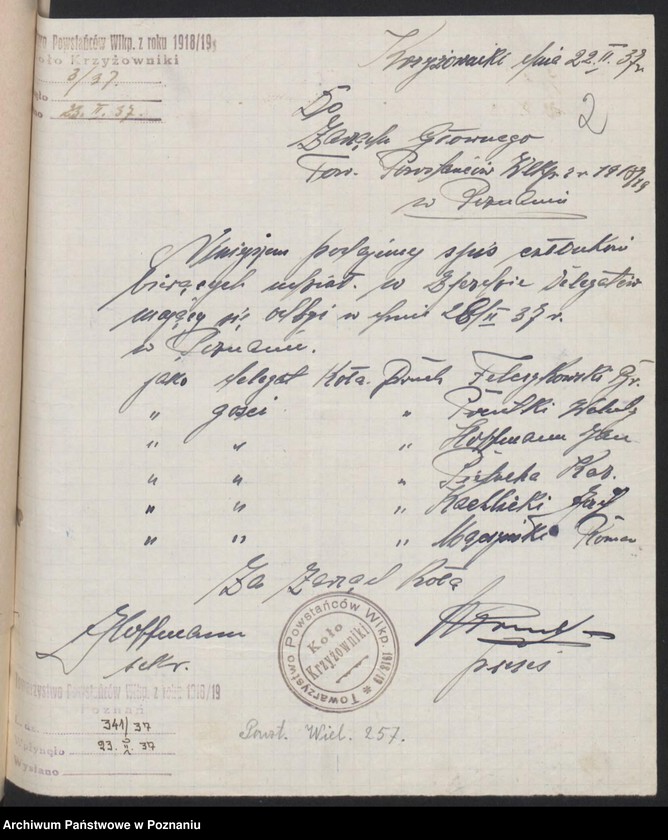 Powstańców Wlkp. z roku 1918/19
Koło Krzyżowniki
3/37.
23. II. 37.
Krzyżowniki dnia 22.II.37 r.
2
Do
Zarządu Głównego
Tow. Powstańców Wlkp. z r. 1918/19
w Poznaniu
Niniejszem podajemy spis członków
biorących udział. w Zjeździe Delegatów
mający się odbyć w dniu 28/II 37 r.
w Poznaniu.
jako delegat Koła. Druh
" gości "
" " " Hoffmann Jan
" " " Kaz.
" " "
" " " Roman
Za Zarząd Koła
Hoffmann
sekr.
prezes
Towarzystwo Powstańców Wlkp. 1918/19
Koło Krzyżowniki
Towarzystwo Powstańców Wlkp. z roku 1918/19
Poznań
L. dz. 341/37
Wpłynęło 23. II. 37
Wysłano
Powst. Wiel. 257.
Archiwum Państwowe w Poznaniu